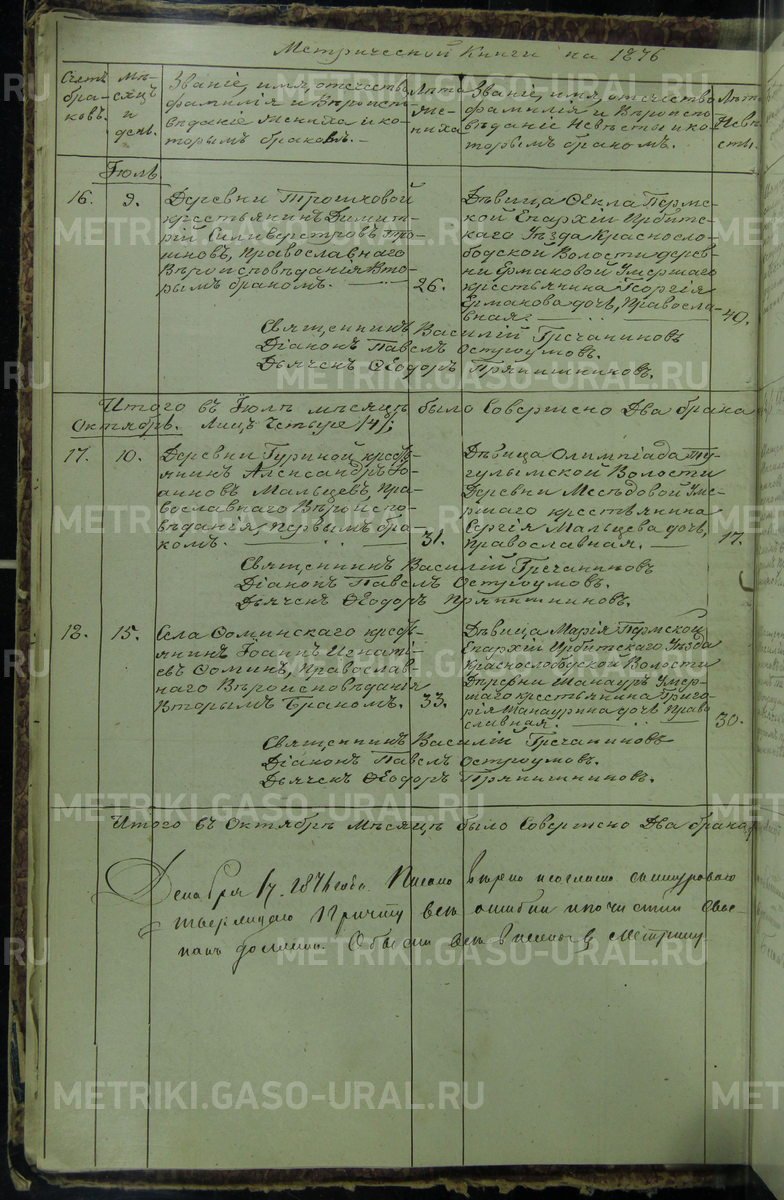 Метрической Книги на 1876
Счетъ браковъ.
Мѣсяцъ и день.
Званіе, имя, отечество
фамилія и Вѣроиспо-
вѣданіе жениха и ко-
торымъ бракомъ.
Лѣта
же-
ниха
Званіе, имя, отечество
фамилія и Вѣроиспо-
вѣданіе Невѣсты и ко-
торымъ бракомъ.
Лѣта
Невѣ-
сты.
Іюль
16. 9.
Деревни Трошковой
крестьянинъ Димит-
рій Силиверстровъ Тро-
шковъ, Православнаго
Вѣроисповѣданія Вто-
рымъ бракомъ.
26.
Дѣвица Ѳекла Пермс-
кой Епархіи Ирбитс-
каго Уѣзда Краснослo-
бодской Волости дерев-
ни Ермаковой Умершаго
крестьянина Георгія
Ермакова дочь, Правосла-
вная.
40.
Священникъ Василій Гречаниновъ
Діаконъ Павелъ Остроумовъ.
Дьячекъ Ѳеодоръ Пряпишниковъ.
Итого въ Іюлѣ мѣсяцѣ было Совершено Два брака
Октябрь. Лицъ Четыре /4/;
17. 10.
Деревни Гуриной кресть-
янинъ Александръ Іо-
анновъ Мальцевъ, Пра-
вославнаго Вѣроиспо-
вѣданія, Первымъ бра-
комъ.
31.
Дѣвица Олимпіада Ту-
гулымской Волости
Деревни Месѣдовой Уме-
ршаго крестьянина
Сергія Мальцева дочь,
православная.
17.
Священникъ Василій Гречаниновъ
Діаконъ Павелъ Остроумовъ.
Дьячекъ Ѳеодоръ Пряпишниковъ.
18. 15.
Села Ѳоминскаго кресть-
янинъ Іоаннъ Игнаті-
евъ Ѳоминъ, Православ-
наго Вѣроисповѣданія
Вторымъ Бракомъ.
33.
Дѣвица Марія Пермской
Епархіи Ирбитскаго Уѣзда
Краснослободской Волости
Деревни Шанауръ Умер-
шаго крестьянина Григо-
рія Шанаурина дочь Право
славная.
30.
Священникъ Василій Гречаниновъ
Діаконъ Павелъ Остроумовъ.
Дьячекъ Ѳеодоръ Пряпишниковъ.
Итого въ Октябрѣ Мѣсяцѣ было Совершено Два брака
Декабря 17. 1876 года. Писано вѣрно и
Причту ошибки
въ Метрику
METRIKI.GASO-URAL.RU